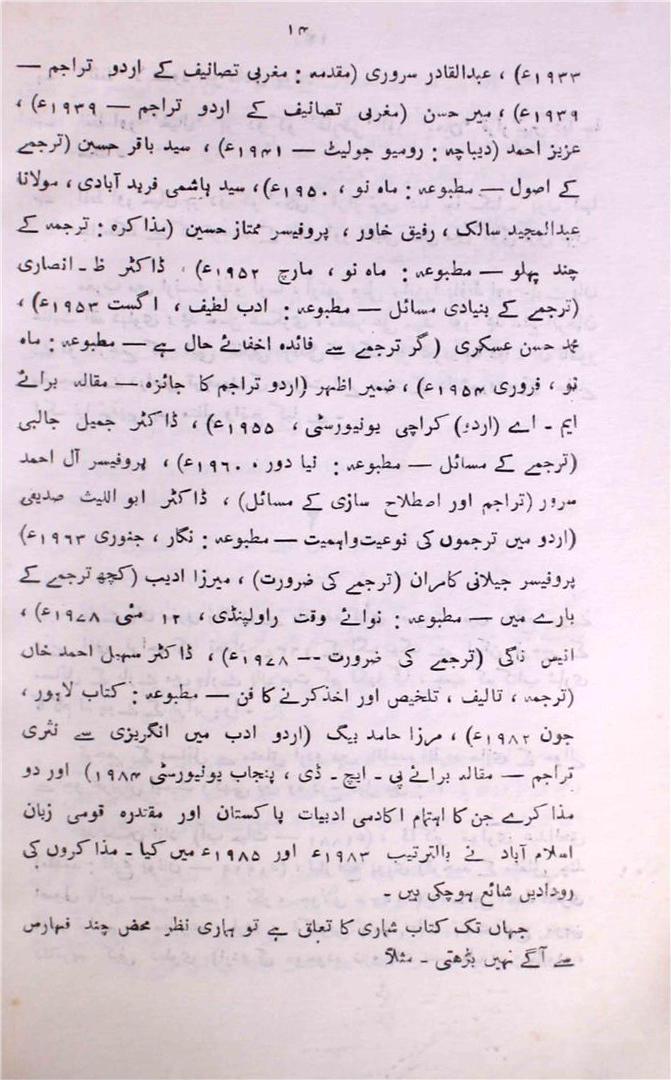 ۱۴
۱۹۳۳ء) ، عبدالقادر سروری (مقدمہ : مغربی تصانیف کے اردو تراجم —
۱۹۳۹ء) ، میر حسن (مغربی تصانیف کے اردو تراجم — ۱۹۳۹ء) ،
عزیز احمد (دیباچہ : رومیو جولیٹ — ۱۹۴۱ء) ، سید باقر حسین (ترجمے
کے اصول — مطبوعہ : ماہ نو ، ۱۹۵۰ء)، سید ہاشمی فرید آبادی ، مولانا
عبدالمجید سالک ، رفیق خاور ، پروفیسر ممتاز حسین (مذاکرہ : ترجمہ کے
چند پہلو — مطبوعہ : ماہ نو ، مارچ ۱۹۵۲ء) ، ڈاکٹر ظ ۔ انصاری
(ترجمے کے بنیادی مسائل — مطبوعہ : ادب لطیف ، اگست ۱۹۵۳ء) ،
محمد حسن عسکری (گر ترجمے سے فائدہ اخفائے حال ہے — مطبوعہ : ماہ
نو ، فروری ۱۹۵۴ء) ، ضمیر اظہر (اردو تراجم کا جائزہ — مقالہ برائے
ایم ۔ اے (اردو) کراچی یونیورسٹی ، ۱۹۵۵ء) ، ڈاکٹر جمیل جالبی
(ترجمے کے مسائل — مطبوعہ : نیا دور ، ۱۹۶۰ء) ، پروفیسر آل احمد
سرور (تراجم اور اصطلاح سازی کے مسائل) ، ڈاکٹر ابو اللیث صدیقی
(اردو میں ترجموں کی نوعیت و اہمیت — مطبوعہ : نگار ، جنوری ۱۹۶۳ء)
پروفیسر جیلانی کامران (ترجمے کی ضرورت) ، میرزا ادیب (کچھ ترجمے کے
بارے میں — مطبوعہ : نوائے وقت راولپنڈی ، ۱۲ مئی ۱۹۷۸ء) ،
انیس ناگی (ترجمے کی ضرورت -- ۱۹۷۸ء) ، ڈاکٹر سہیل احمد خاں
(ترجمہ ، تالیف ، تلخیص اور اخذ کرنے کا فن — مطبوعہ : کتاب لاہور ،
جون ۱۹۸۲ء) ، مرزا حامد بیگ (اردو ادب میں انگریزی سے نثری
تراجم — مقالہ برائے پی ۔ ایچ ۔ ڈی ، پنجاب یونیورسٹی ۱۹۸۴) اور دو
مذاکرے جن کا اہتمام اکادمی ادبیات پاکستان اور مقتدرہ قومی زبان
اسلام آباد نے بالترتیب ۱۹۸۳ء اور ۱۹۸۵ء میں کیا ۔ مذاکروں کی
رودادیں شائع ہوچکی ہیں ۔
جہاں تک کتاب شماری کا تعلق ہے تو ہماری نظر محض چند فہارس
سے آگے نہیں بڑھتی ۔ مثلاً